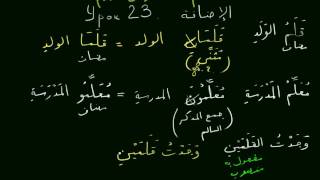 Урок 23. الإضافة
قَلَمُ الوَلَدِ
مضاف
قَلَمَانِ الولد = قَلَمَا الولد
مضاف
(تثنية)
مُعَلِّمُ المَدْرَسَةِ مُعَلِّمُونَ المدرسة = مُعَلِّمُو المَدْرَسَةِ
مضاف
(جمع المذكر السالم)
وَجَدْتُ القَلَمَيْنِ وَجَدْتُ قَلَمَيْنِ
مفعول به
منصوب